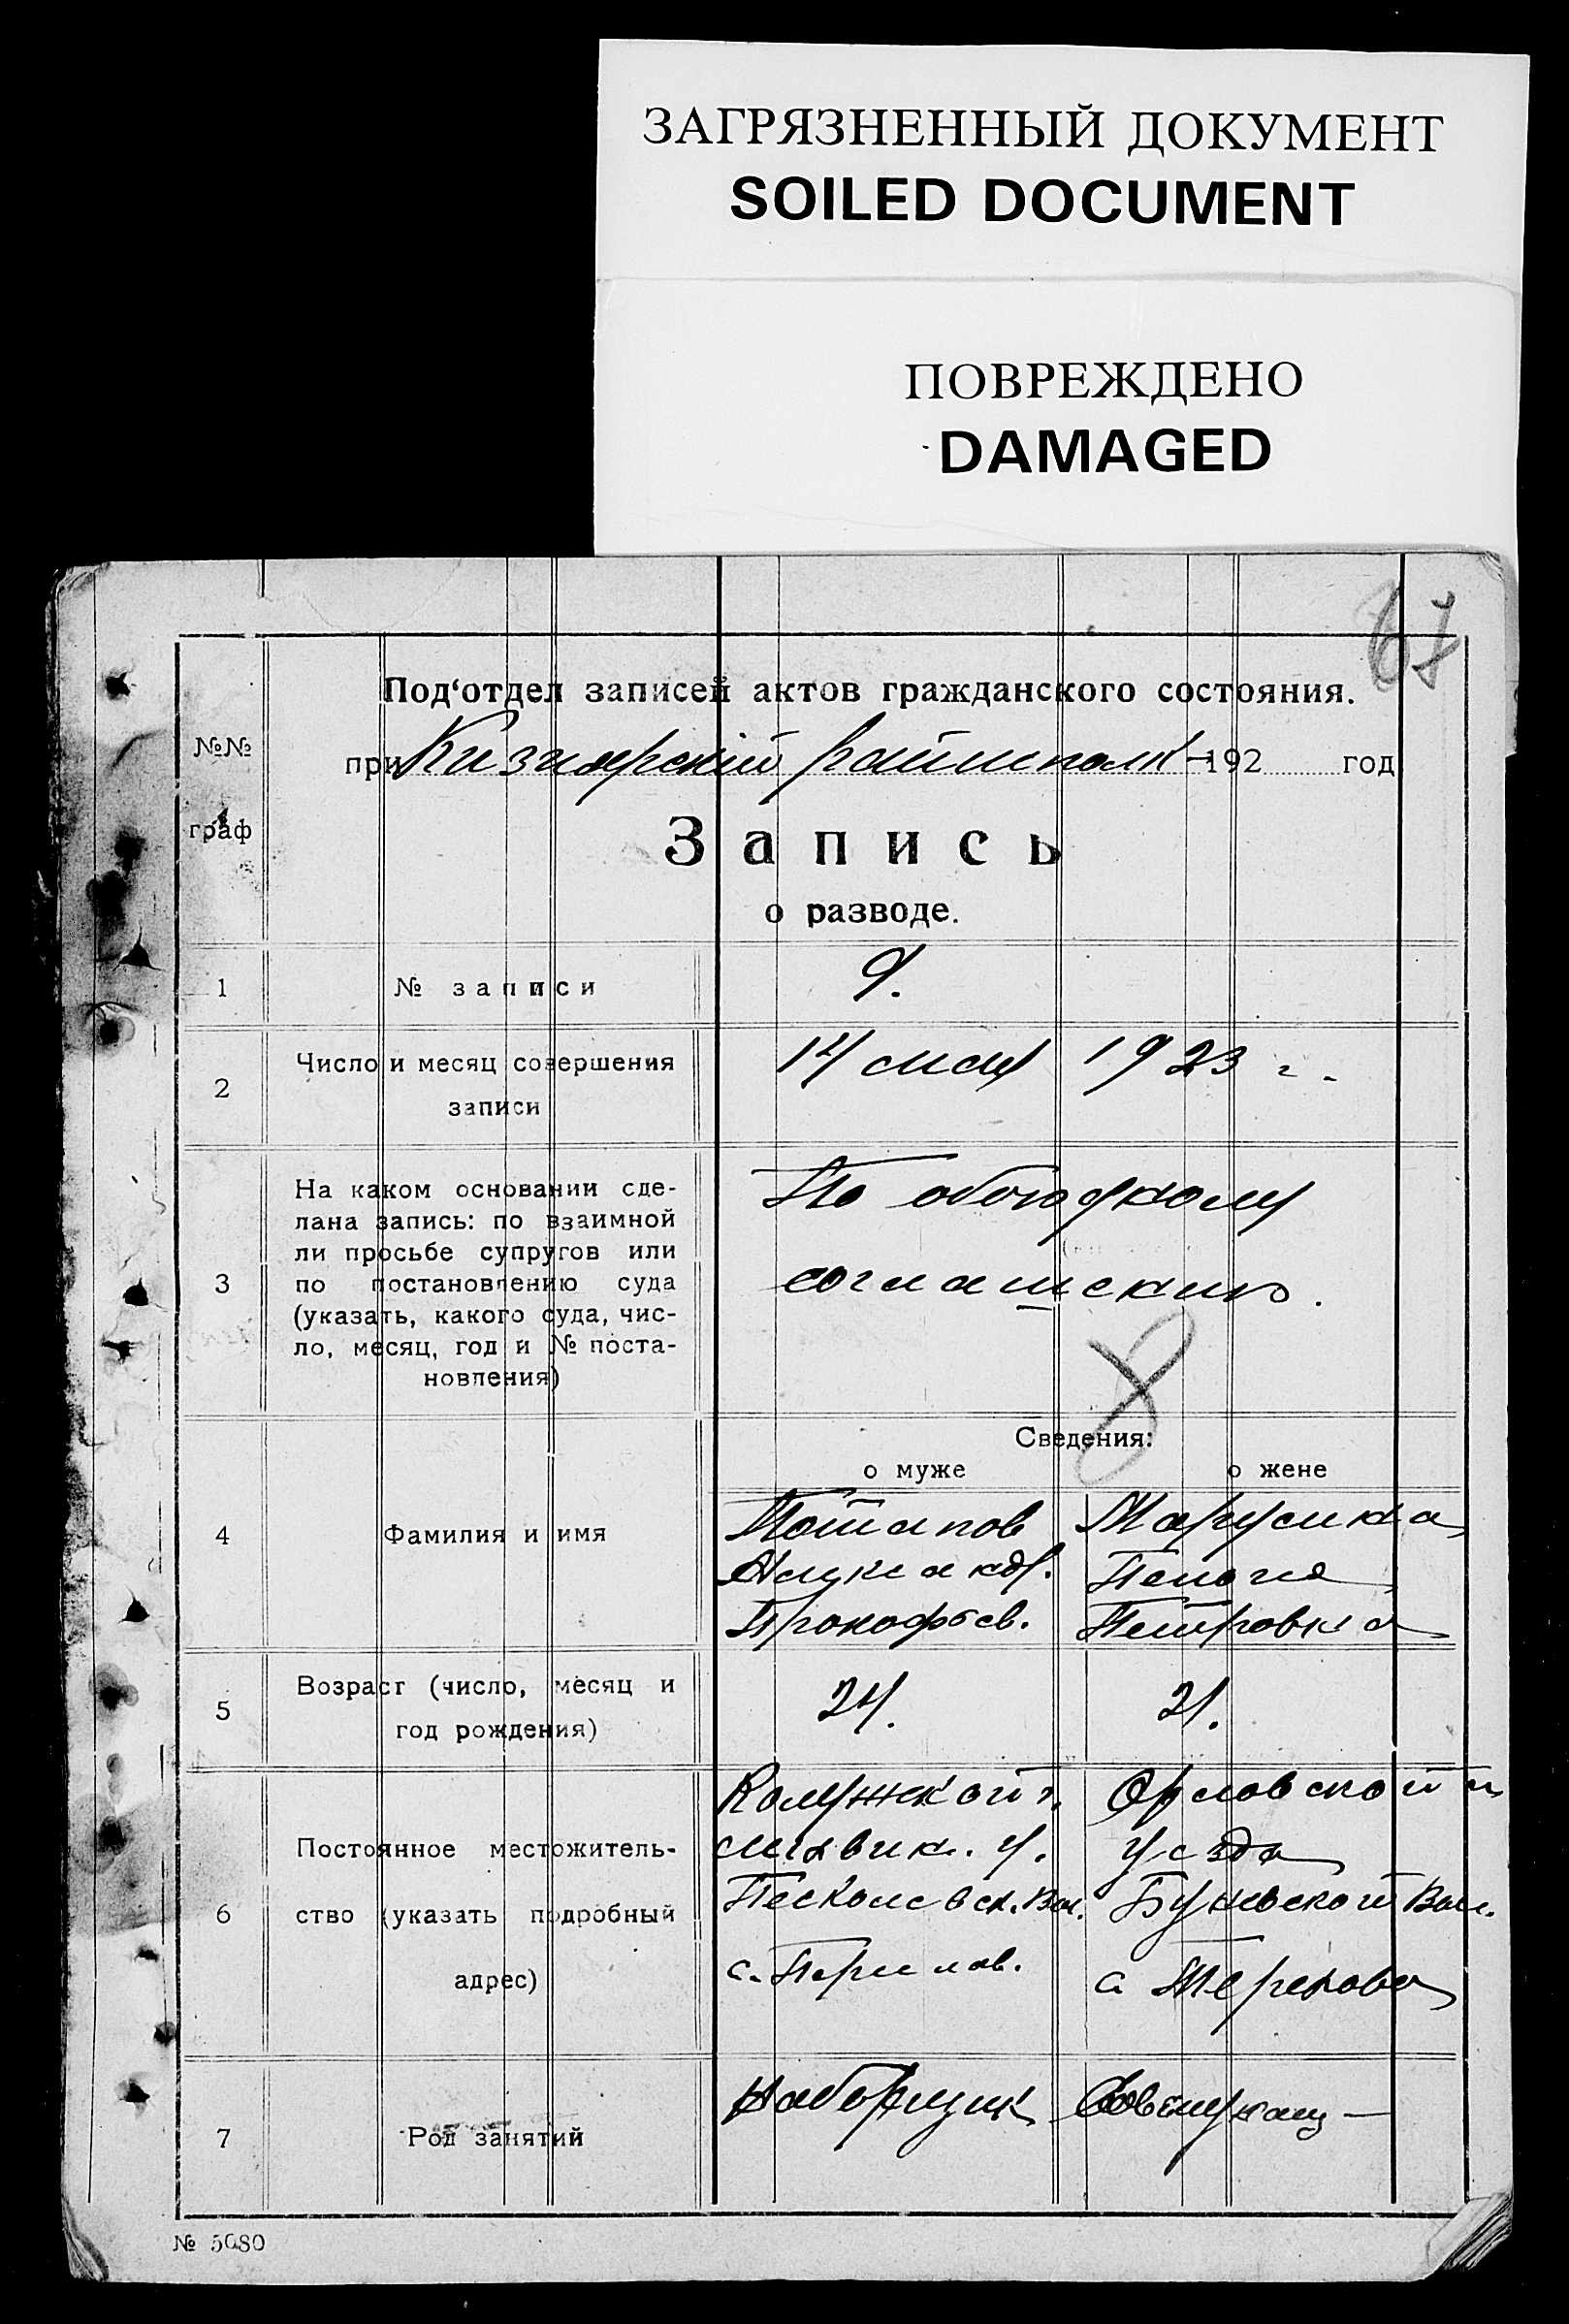 ЗАГРЯЗНЕННЫЙ ДОКУМЕНТ
SOILED DOCUMENT
ПОВРЕЖДЕНО
DAMAGED
67
Под‘отдел записей актов гражданского состояния.
№№
граф
при 192 год
Запись
о разводе.
1 № записи 9.
2 Число и месяц совершения
записи
14 мая 1923 г.
3 На каком основании сде-
лана запись: по взаимной
ли просьбе супругов или
по постановлению суда
(указать, какого суда, чис-
ло, месяц, год и № поста-
новления)
По обоюдному
соглашению.
Сведения:
о муже о жене
4 Фамилия и имя
Потапов
Александ.
Прокофьев.
Пелогея
Петровна
5 Возраст (число, месяц и
год рождения)
24. 21.
6 Постоянное местожитель-
ство (указать подробный
адрес)
Калужской г.
у.
Вол.
с.
Орловской г.
уезда
Вол.
с Терехова
7 Род занятий
наборщик
№ 5080